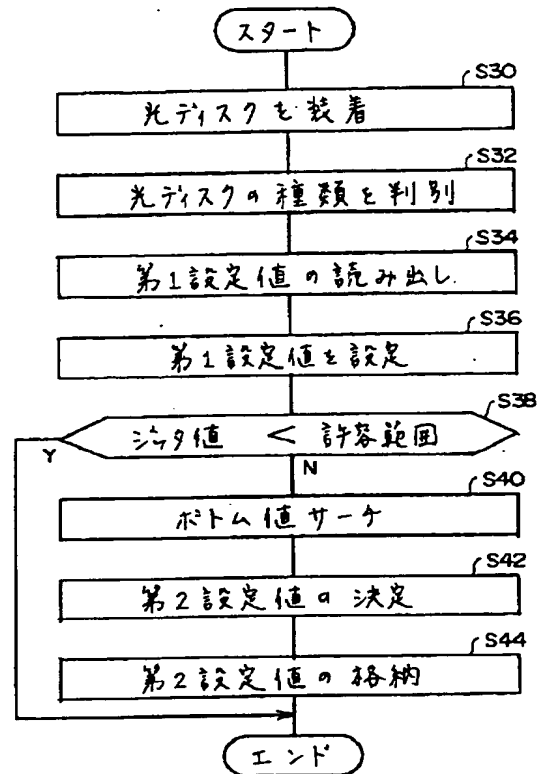 スタート
S30
光ディスクを装着
S32
光ディスクの種類を判別
S34
第1設定値の読み出し
S36
第1設定値を設定
S38
ジッタ値 < 許容範囲
Y
N
S40
ボトム値サーチ
S42
第2設定値の決定
S44
第2設定値の格納
エンド